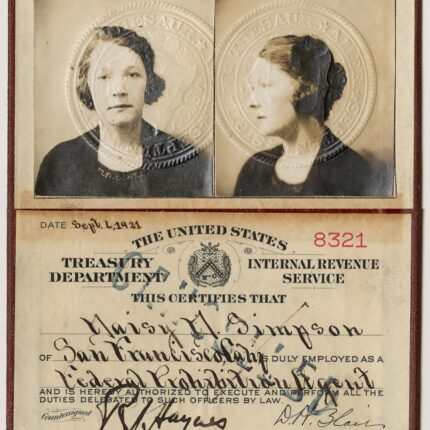 DATE Sept. 1, 1921
THE UNITED STATES
8321
TREASURY DEPARTMENT
INTERNAL REVENUE SERVICE
THIS CERTIFIES THAT
Daisy D. Simpson
OF San Francisco Cal. IS DULY EMPLOYED AS A
Federal Prohibition Agent
AND IS HEREBY AUTHORIZED TO EXECUTE AND PERFORM ALL THE
DUTIES DELEGATED TO SUCH OFFICERS BY LAW.
Countersigned
R. A. Haynes
D. H. Blair